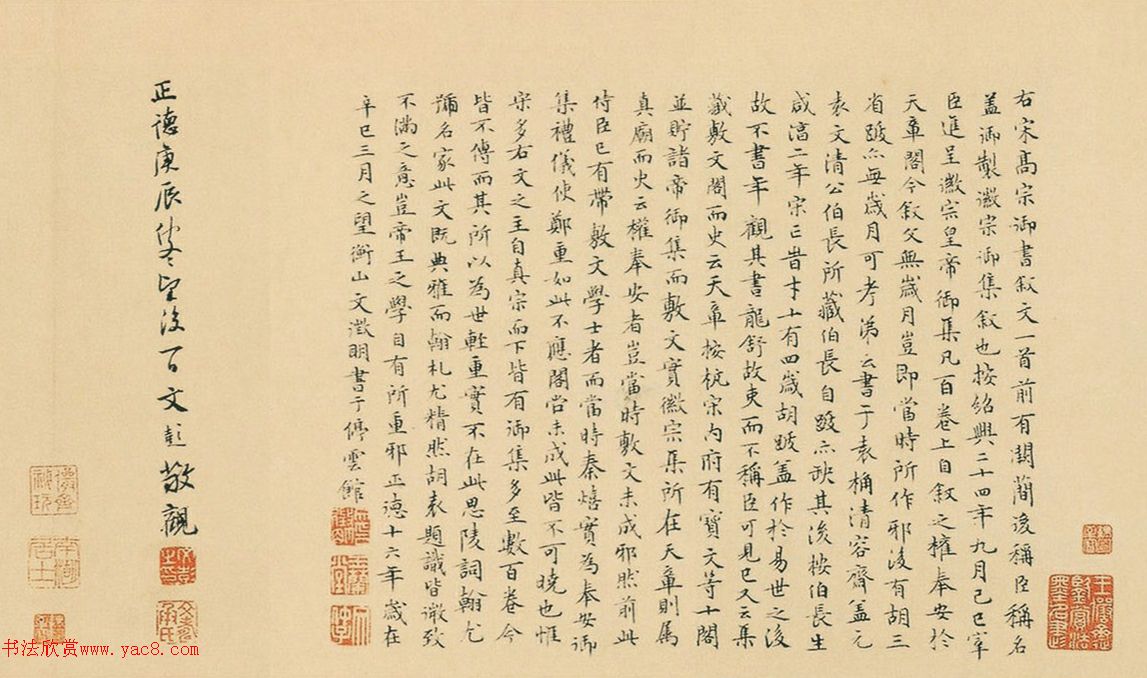 右宋高宗御書叙文一首前有闕簡後稱臣稱名
盖御製徽宗御集叙也按紹興二十四年九月己巳宰
臣進呈徽宗皇帝御集凡百卷上自叙之權奉安於
天章閣今叙父無歲月豈即當時所作邪後有胡三
省跋亦無歲月可考苐云書于袁桷清容齋盖元
袁文清公伯長所藏伯長自跋亦缺其後按伯長生
咸淳二年宋亡昔才十有四歲胡跋盖作於易世之後
故不書年觀其書龍舒故吏而不稱臣可見已又云集
藏敷文閣而史云天章按杭宋内府有寳文等十閣
並貯諸帝御集而敷文實徽宗集所在天章則属
真廟而史云權奉安者豈當時敷文未成邪然前此
侍臣已有帶敷文學士者而當時秦熺實為奉安御
集禮儀使鄭重如此不應閣尚未成此皆不可曉也惟
宋多右文之主自真宗而下皆有御集多至數百卷今
皆不傳而其所以為世輕重實不在此思陵詞翰尤
號名家此文既典雅而翰札尤精然胡袁題識皆微致
不滿之意豈帝王之學自有所重邪正德十六年歲在
辛巳三月之望衡山文徵明書于停雲館
正德庚辰仲冬望後一百文彭敬觀
南湖
居士
书法欣赏www.yac8.com